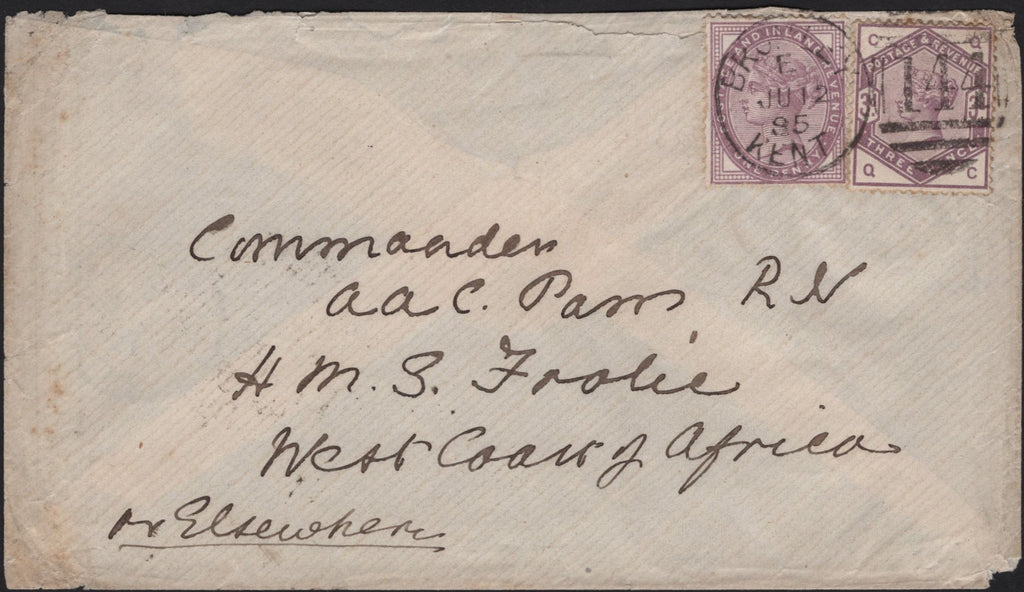 POSTAGE AND INLAND REVENUE
ONE PENNY
BROMLEY
E
JU 12
85
KENT
Q C
POSTAGE & REVENUE
3D
THREE PENCE
Q C
144
Commander
A A C. Parr R N
H M. S. Frolic
West Coast of Africa
or Elsewhere